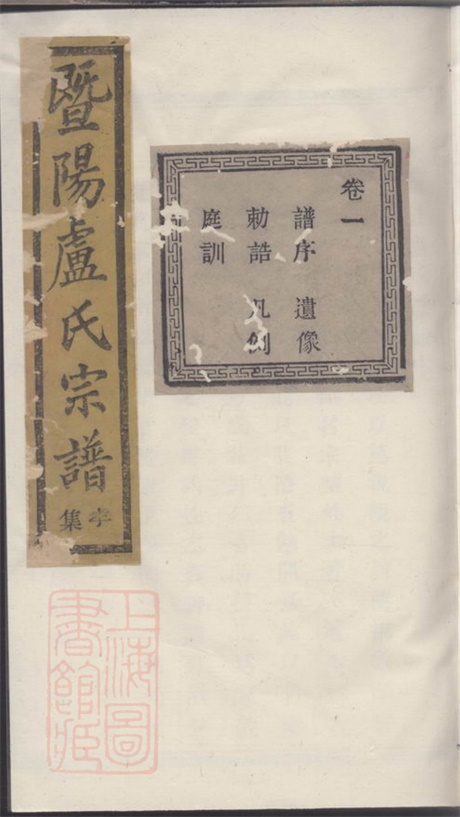 暨陽盧氏宗譜
孝集
卷一
譜序 遺像
勅誥 凡例
庭訓
上海圖
書館藏